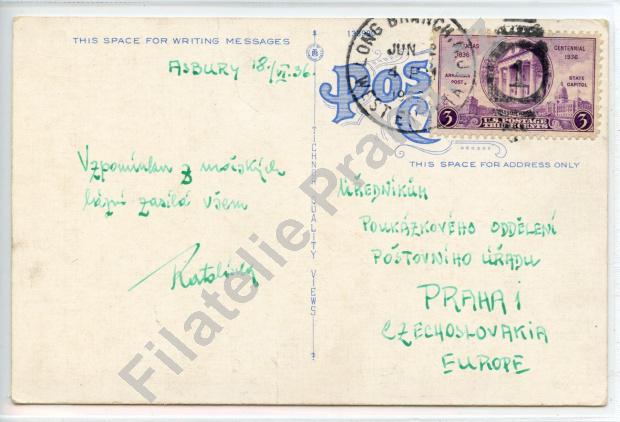 THIS SPACE FOR WRITING MESSAGES
ASBURY 18./VI.36.
Vzpomínku z mořských
lázní zasílá všem
TICHNOR QUALITY VIEWS
POST
LONG BRANCH
JUN
WEST E
ARKANSAS CENTENNIAL
1836 1936
ARKANSAS POST
STATE CAPITOL
3 U.S. POSTAGE 3
THREE CENTS
THIS SPACE FOR ADDRESS ONLY
ÚŘEDNÍKŮM
POUKÁZKOVÉHO ODDĚLENÍ
POŠTOVNÍHO ÚŘADU
PRAHA 1
CZECHOSLOVAKIA
EUROPE
Filatelie Pra